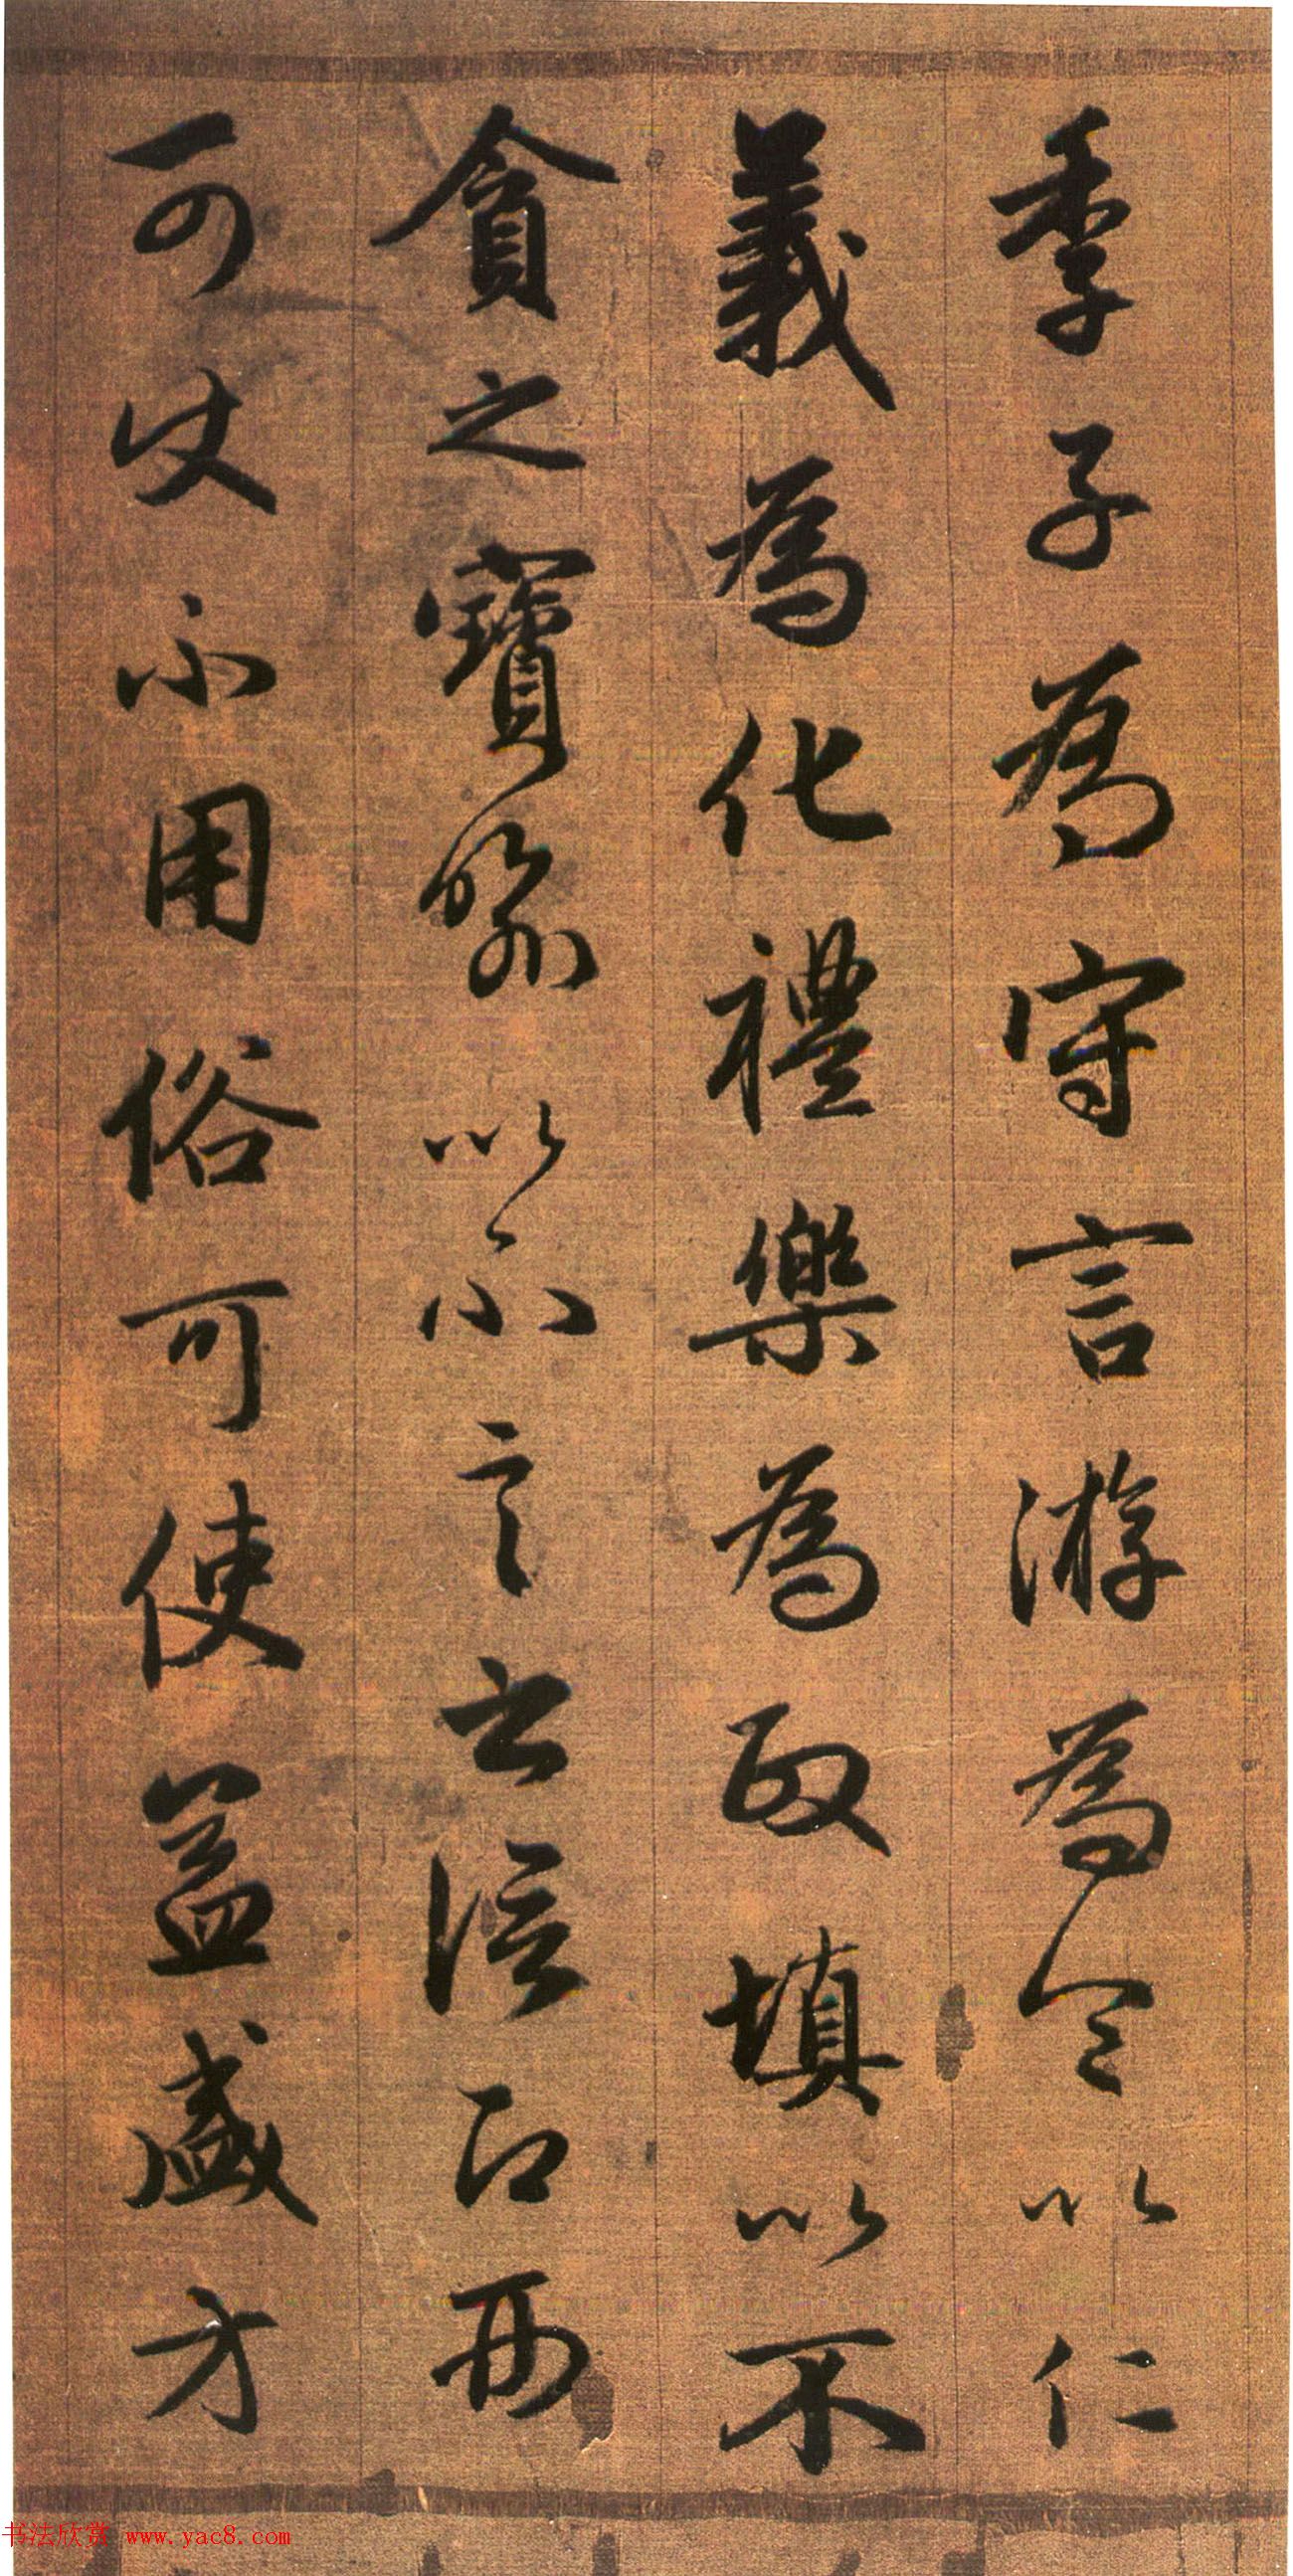 季子為守言游為令以仁
義為化禮樂為政填以不
貪之寶以不言之信即刑
可使不用俗可使益盛方
书法欣赏 www.yac8.com